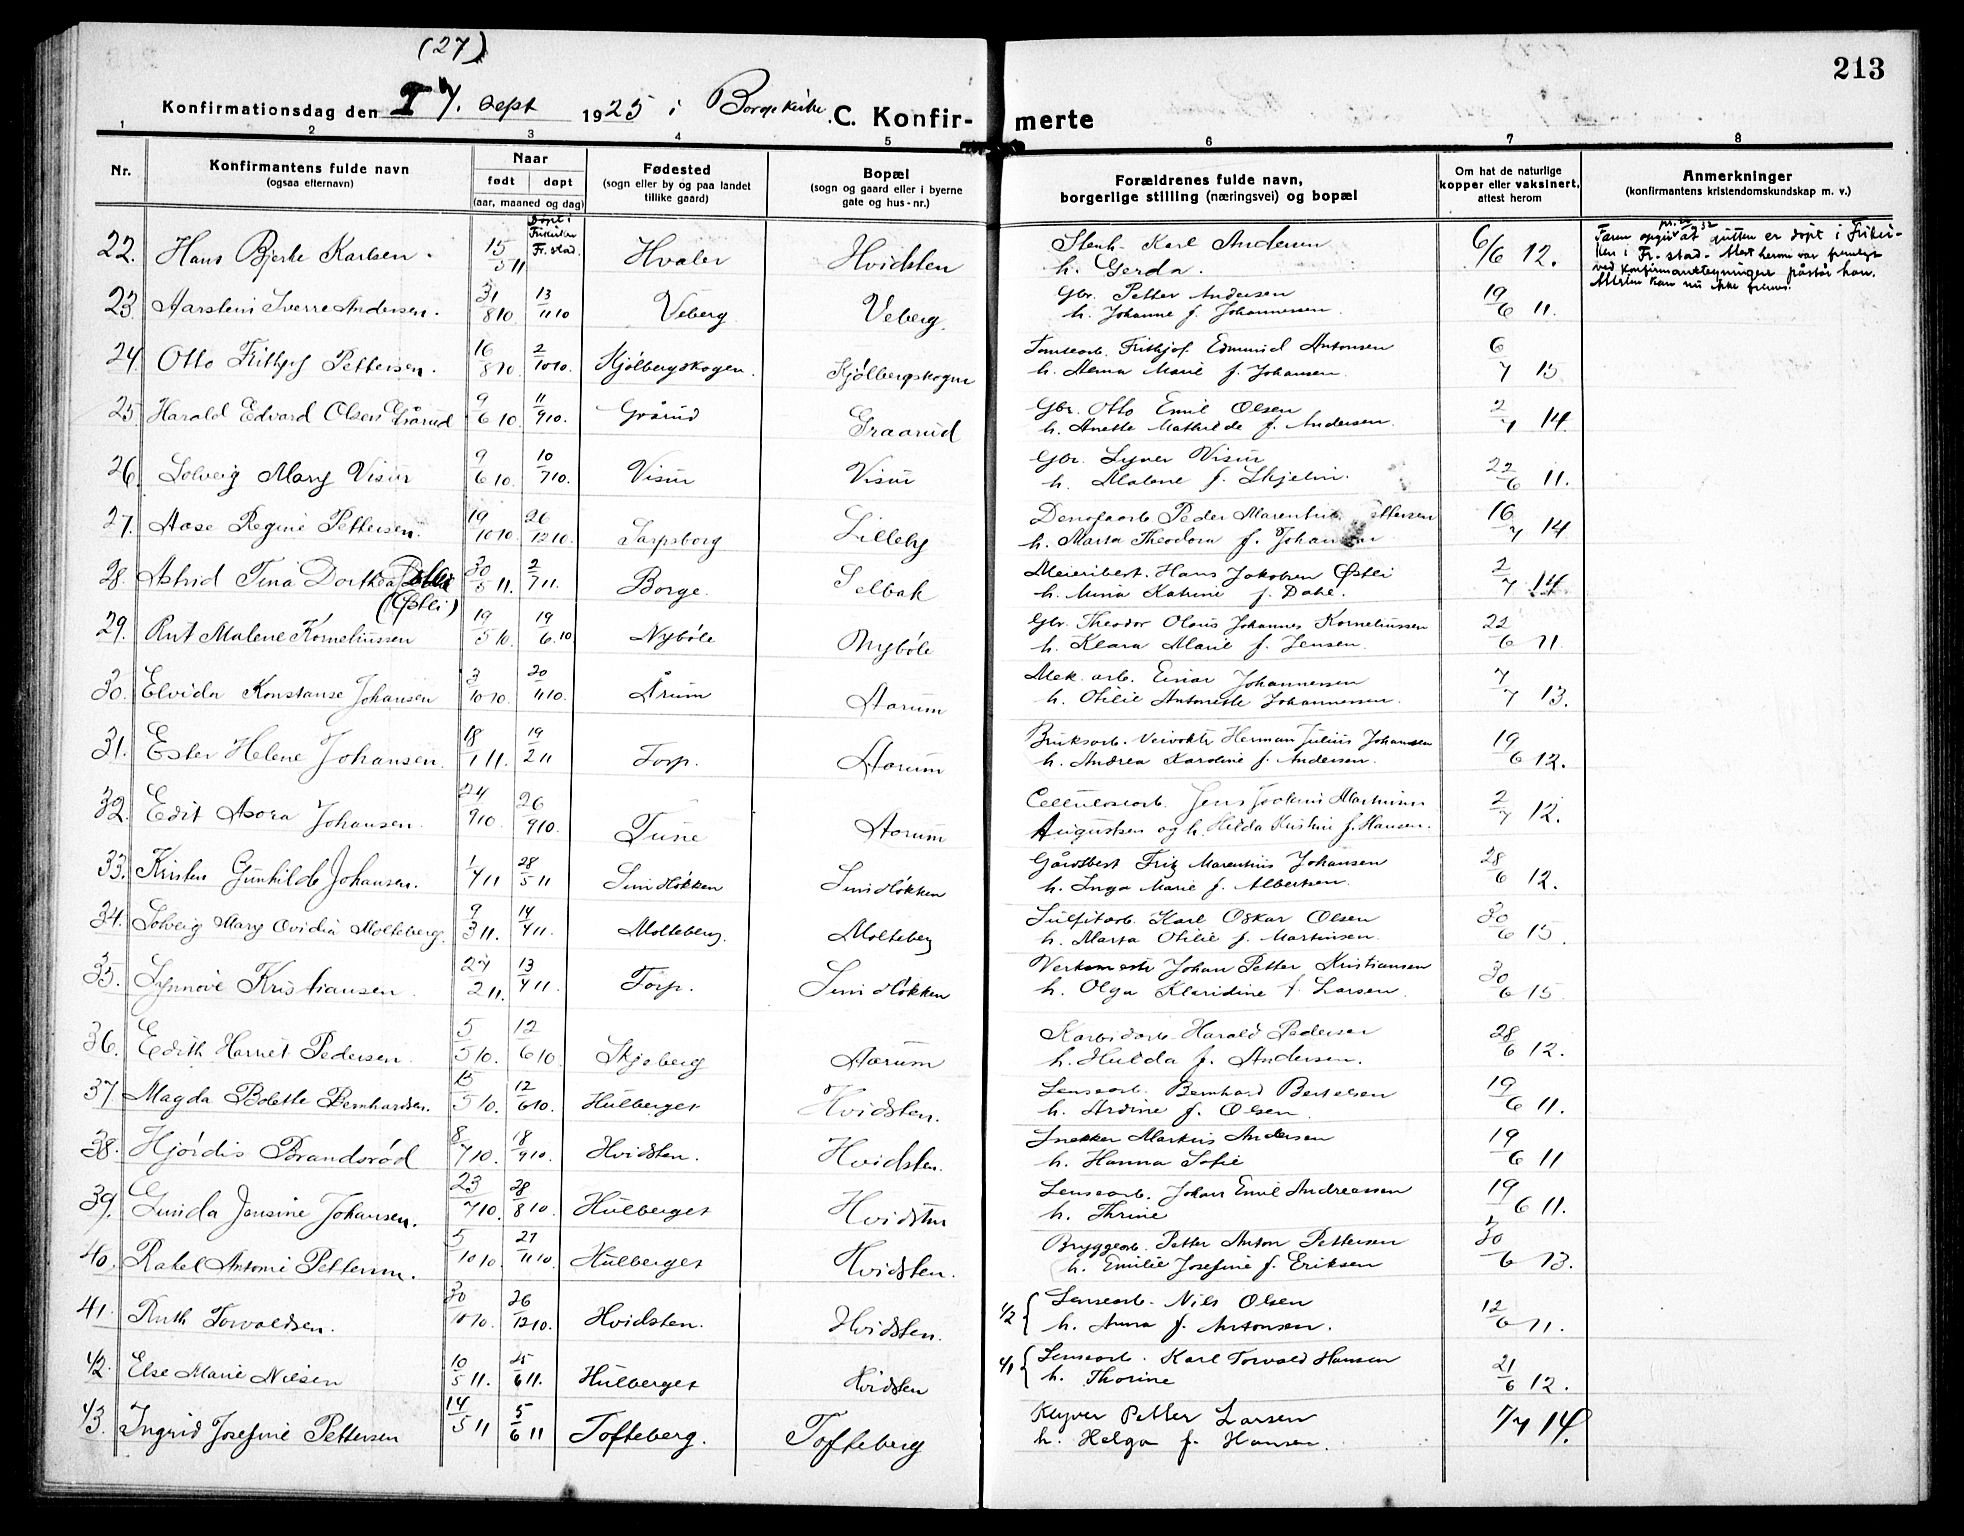 (27)
213
Konfirmationsdag den 27. sept 1925 i Borge kirke. C. Konfirmerte
1 2 3 4 5 6 7 8
Nr. Konfirmantens fulde navn (ogsaa efternavn) Naar født døpt (aar, maaned og dag) Fødested (sogn eller by og paa landet tillike gaard) Bopæl (sogn og gaard eller i byerne gate og hus-nr.) Forældrenes fulde navn, borgerlige stilling (næringsvei) og bopæl Om hat de naturlige kopper eller vaksinert, attest herom Anmerkninger (konfirmantens kristendomskundskap m. v.)
22. Hans Bjerke Karlsen. 15/5 11 Døpt i Frikirken Fr.stad. Hvaler Hvidsten Stenh. Karl Andersen h. Gerda. 6/6 12. Faren opgir at gutten er døpt i Frikirken i Fr.stad. Attest herom var fremlagt ved konfirmanttegningen påstår han. Attesten kan nu ikke finnes.
23. Sverre Andersen. 31/8 10 13/11 10 Veberg Veberg. Gbr. Petter Andersen h. Johanne f. Johannessen. 19/6 11.
24. Otto Frithjof Pettersen. 16/8 10. 2/10 10. Kjølbergskogen. Kjølbergskogen Tomtearb. Frithjof Edmund Antonsen h. Anna Marie f. Johansen. 6/7 15
25. Harald Edvard Olsen Grårud 9/6 10. 11/9 10. Grårud Graarud Gbr. Otto Emil Olsen h. Anette Mathilde f. Andersen. 2/7 14.
26. Solveig Mary Visur 9/6 10. 10/7 10. Visur Visur Gbr. Syver Visur h. Malene f. Skjelin. 22/6 11.
27. Aase Regine Pettersen. 19/10 10. 26/12 10. Sarpsborg Lilleby Denofaarb. Peder Marentius Pettersen h. Marta Theodora f. Johansen 16/7 14
28. Astrid Tina Dorthea (Østli) 30/5 11. 2/7 11. Borge. Selbak Meieribest. Hans Jakobsen Østli h. Mina Katrine f. Dahl. 2/7 14
29. Rut Malene Korneliussen 19/5 10. 19/6 10 Nybøle Nybøle Gbr. Theodor Olaus Johannes Korneliussen h. Klara Marie f. Jensen. 22/6 11.
30. Elvida Konstanse Johansen 3/10 10. 20/11 10. Årum Aarum Mek. arb. Einar Johannessen h. Otilie Antonette Johannessen. 7/7 13.
31. Ester Helene Johansen. 18/1 11. 19/2 11 Torp. Aarum Bruksarb. Herman Julius Johansen h. Andrea Kardine f. Andersen. 19/6 12.
32. Edit Asora Johansen. 24/9 10. 26/9 10. Tune Aarum Cellulosearb. Jens Joakim Martinius Augustsen og h. Hilda Kristine f. Hansen. 2/7 12.
33. Kristen Gunhilde Johansen. 1/4 11 28/5 11 Sundløkken Sundløkken Gårdsbest. Fritz Marentius Johansen h. Inga Marie f. Albertsen. 28/6 12.
34. Solveig Mary Ovidia Molteberg. 9/3 11. 14/4 11. Molteberg. Molteberg Sulfitarb. Karl Oskar Olsen h. Marta Otilie f. Martinsen. 30/6 15.
35. Synnøve Kristiansen. 27/2 11. 13/4 11. Torp. Sundløkken Verksmester Johan Petter Kristiansen h. Olga Klaridine f. Larsen. 30/6 15.
36. Edith Harriet Pedersen. 5/5 10. 12/6 10. Skjeberg Aarum Karbidarb. Harald Pedersen h. Hulda f. Andersen. 28/6 12.
37 Magda Bolette Bernhardsen. 15/5 10. 12/6 10. Hulberget Hvidsten. Lensearb. Bernhard Bertelsen h. Ardine f. Olsen. 19/6 11.
38. Hjørdis Brandsrød 8/7 10. 18/9 10. Hvidsten. Hvidsten. Snekker Markus Andersen h. Hanna Sofie 19/6 11
39. Gunda Jensine Johansen. 23/7 10. 28/8 10. Hulberget Hvidsten Lensearb. Johan Emil Andreassen h. Thrine 19/6 11.
40. Rakel Antonie Pettersen. 5/10 10. 27/11 10. Hulberget Hvidsten. Bryggearb. Petter Anton Pettersen h. Emilie Josefine f. Eriksen 30/6 13.
41. Ruth Torvaldsen. 30/10 10. 26/12 10. Hvidsten. Hvidsten. 42 { Lensearb. Nils Olsen h. Anna f. Antonsen. 12/6 11.
42. Else Marie Nilsen 10/5 11. 25/6 11. Hulberget Hvidsten 41 { Lensearb. Karl Torvald Hansen h. Thorine 21/6 12.
43. Ingrid Josefine Pettersen 14/5 11 5/6 11 Tofteberg. Tofteberg Kløver Petter Larsen h. Helga f. Hansen. 7/7 14.